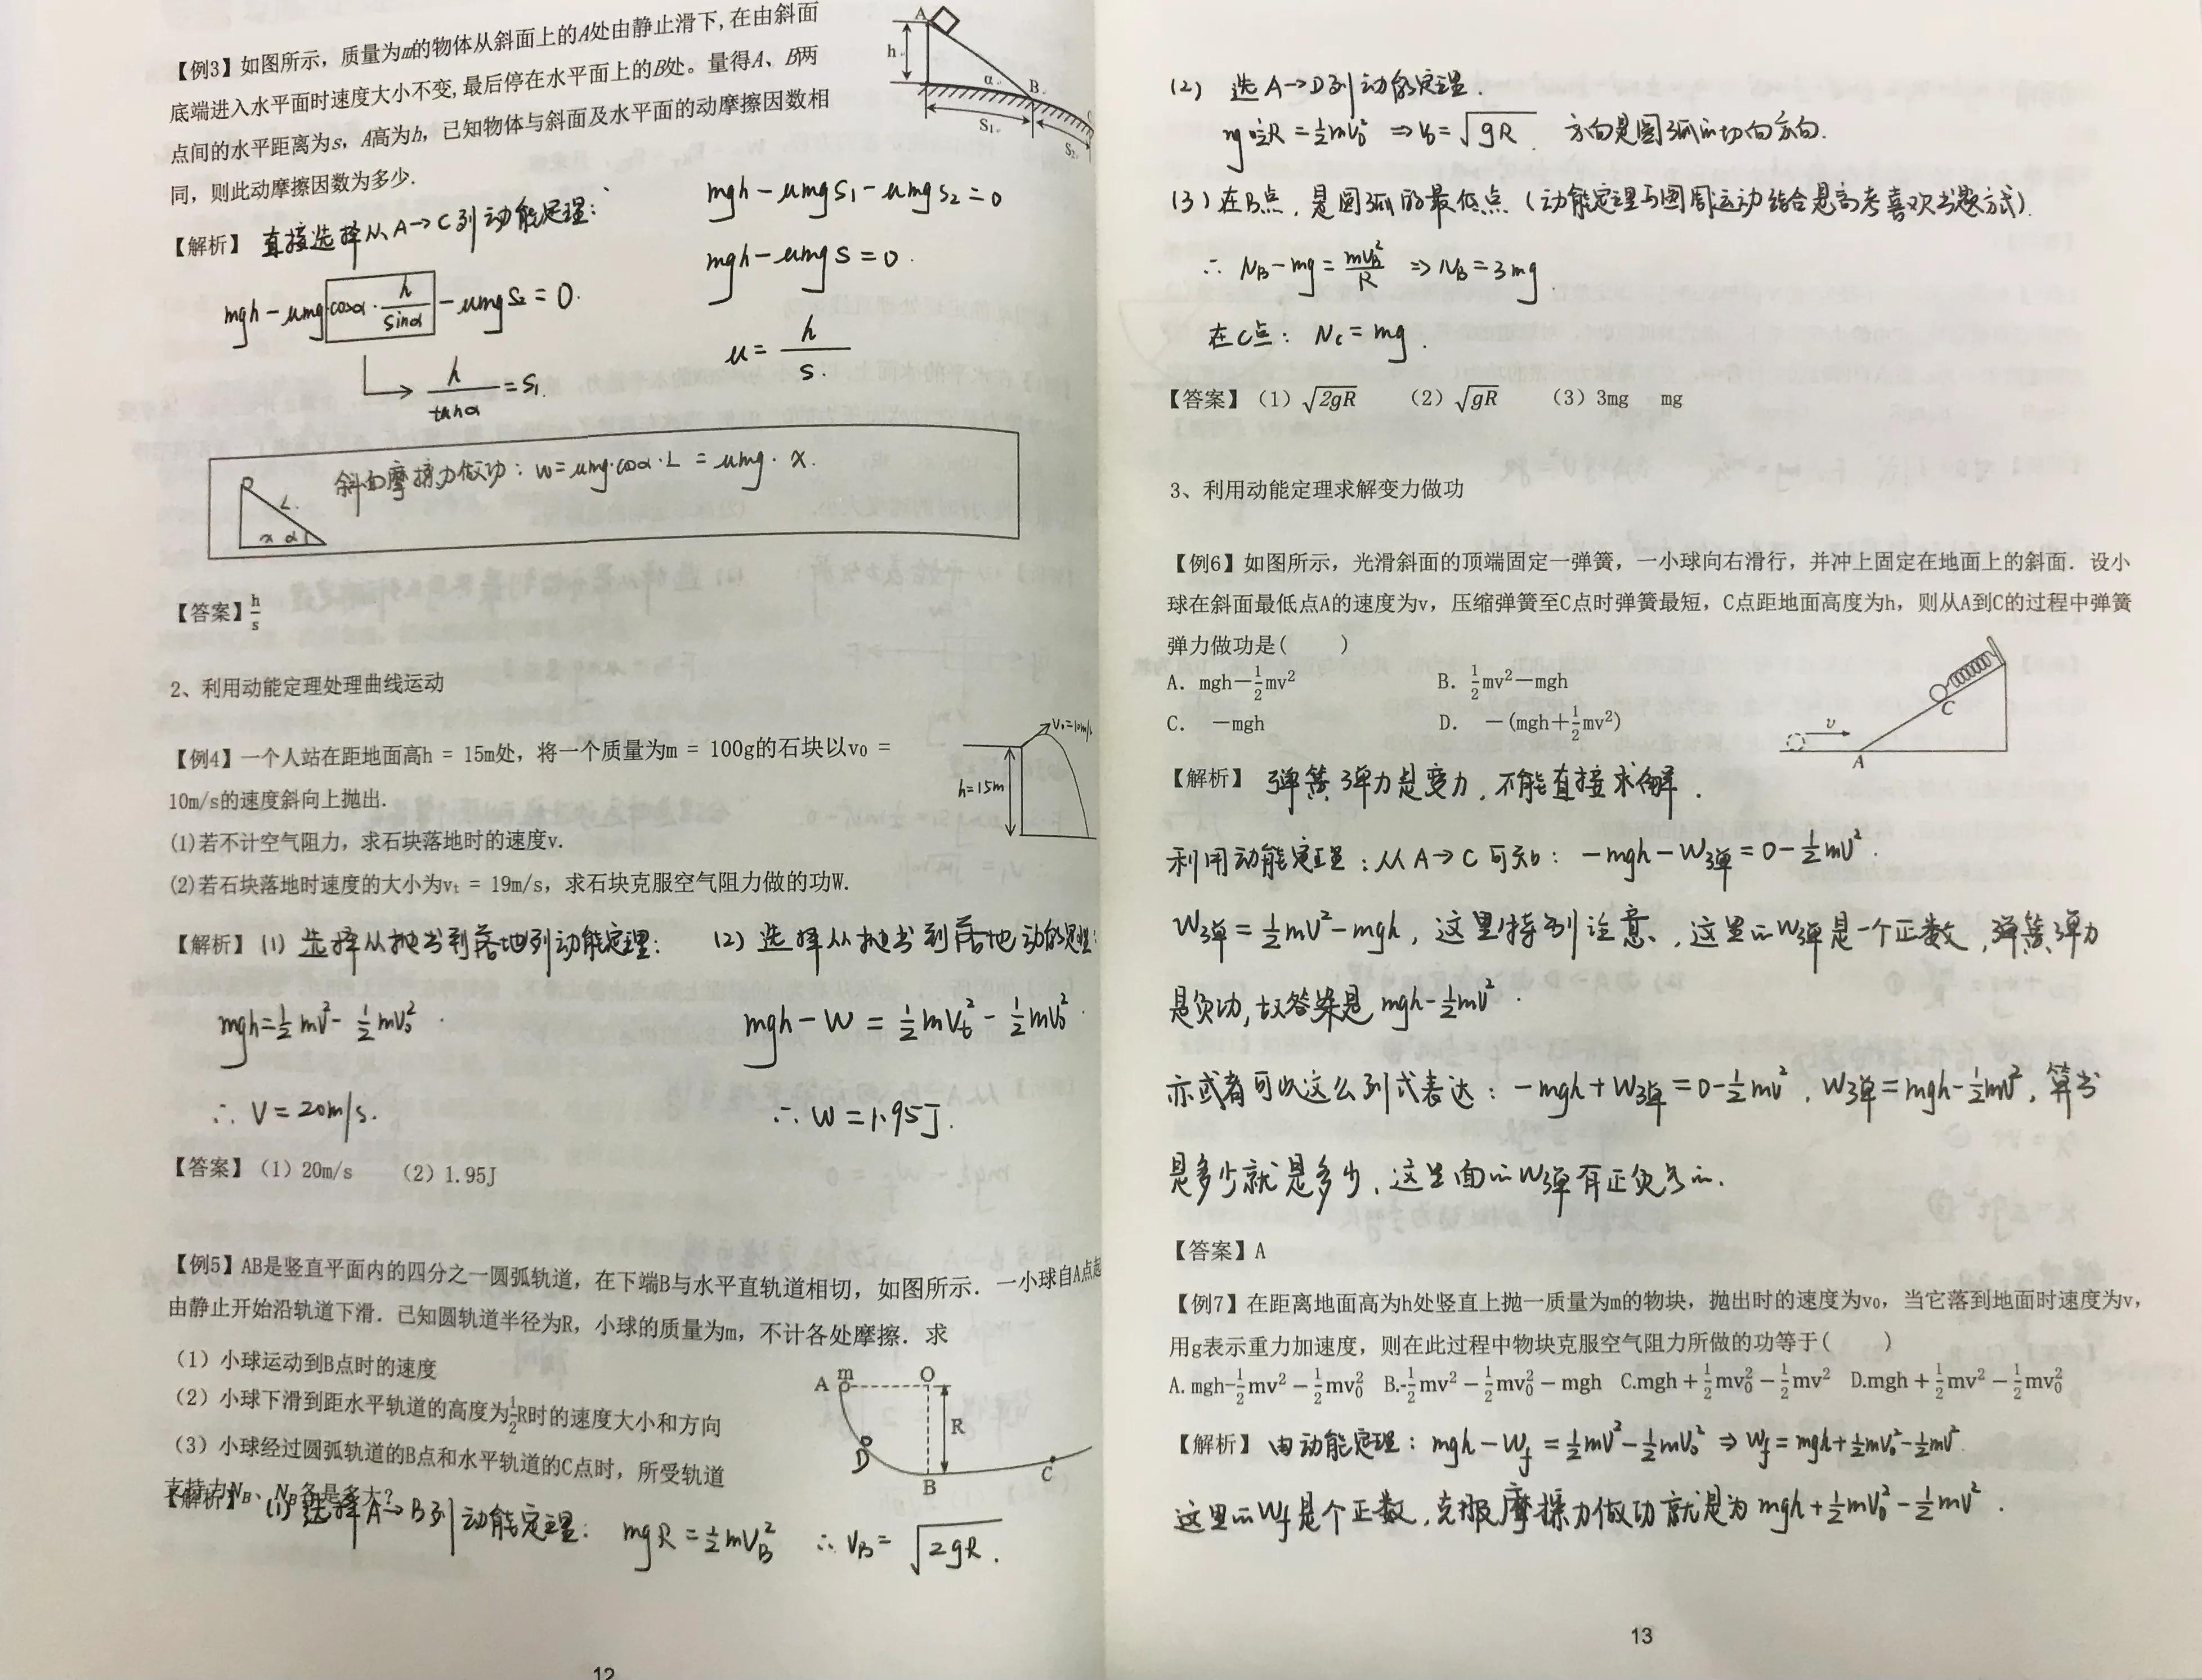 【例3】如图所示，质量为m的物体从斜面上的A处由静止滑下，在由斜面
底端进入水平面时速度大小不变，最后停在水平面上的B处。量得A、B两
点间的水平距离为s，A高为h，已知物体与斜面及水平面的动摩擦因数相
同，则此动摩擦因数为多少.
A
h
α
B
S₁
S₂
【解析】 直接选择从A→C列动能定理：
mgh－μmg cosα·h/sinα－μmgS₂=0.
h/tanα=S₁
mgh－μmgS₁－μmgS₂=0
mgh－μmgS=0.
μ=h/s.
斜面摩擦力做功：W=μmg·cosα·L=μmg·x.
L.
x α
【答案】h/s
2、利用动能定理处理曲线运动
【例4】一个人站在距地面高h = 15m处，将一个质量为m = 100g的石块以v₀ =
10m/s的速度斜向上抛出.
(1)若不计空气阻力，求石块落地时的速度v.
(2)若石块落地时速度的大小为vₜ = 19m/s，求石块克服空气阻力做的功W.
V₀=10m/s
h=15m
【解析】(1) 选择从抛出到落地列动能定理：
mgh=½mV²－½mV₀².
∴ V=20m/s.
(2) 选择从抛出到落地动能定理：
mgh－W=½mVₜ²－½mV₀².
∴ W=1.95J.
【答案】（1）20m/s （2）1.95J
【例5】AB是竖直平面内的四分之一圆弧轨道，在下端B与水平直轨道相切，如图所示．一小球自A点起
由静止开始沿轨道下滑．已知圆轨道半径为R，小球的质量为m，不计各处摩擦．求
（1）小球运动到B点时的速度
（2）小球下滑到距水平轨道的高度为½R时的速度大小和方向
（3）小球经过圆弧轨道的B点和水平轨道的C点时，所受轨道
支持力N_B、N_B各是多大?
A
m
O
R
D
B
C
【解析】 (1) 选择A→B列动能定理： mgR=½mV_B² ∴ V_B=√2gR.
12
(2) 选A→D列动能定理.
mg½R=½mV_D² ⇒V_D=√gR. 方向是圆弧的切向方向.
(3) 在B点，是圆弧的最低点（动能定理与圆周运动结合是高考喜欢出题方式).
∴ N_B－mg=mV_B²/R ⇒N_B=3mg.
在C点： N_C=mg.
【答案】（1）√2gR （2）√gR （3）3mg mg
3、利用动能定理求解变力做功
【例6】如图所示，光滑斜面的顶端固定一弹簧，一小球向右滑行，并冲上固定在地面上的斜面．设小
球在斜面最低点A的速度为v，压缩弹簧至C点时弹簧最短，C点距地面高度为h，则从A到C的过程中弹簧
弹力做功是( )
A. mgh－½mv² B. ½mv²－mgh
C. －mgh D. －(mgh＋½mv²)
v
A
C
【解析】 弹簧弹力是变力，不能直接求解.
利用动能定理：从A→C可知：－mgh－W弹=0－½mV².
W弹=½mV²－mgh，这里特别注意，这里的W弹是一个正数，弹簧弹力
是负功，故答案是 mgh－½mV².
亦或者可以这么列式表达：－mgh＋W弹=0－½mV²，W弹=mgh－½mV²，算出
是多少就是多少，这里面的W弹有正负号的.
【答案】A
【例7】在距离地面高为h处竖直上抛一质量为m的物块，抛出时的速度为v₀，当它落到地面时速度为v，
用g表示重力加速度，则在此过程中物块克服空气阻力所做的功等于( )
A. mgh-½mv²－½mv₀² B.-½mv²－½mv₀²－mgh C.mgh＋½mv₀²－½mv² D.mgh＋½mv²－½mv₀²
【解析】 由动能定理：mgh－W_f=½mV²－½mV₀² ⇒W_f=mgh＋½mV₀²－½mV²
这里的W_f是个正数，克服摩擦力做功就是为mgh＋½mV₀²－½mV².
13